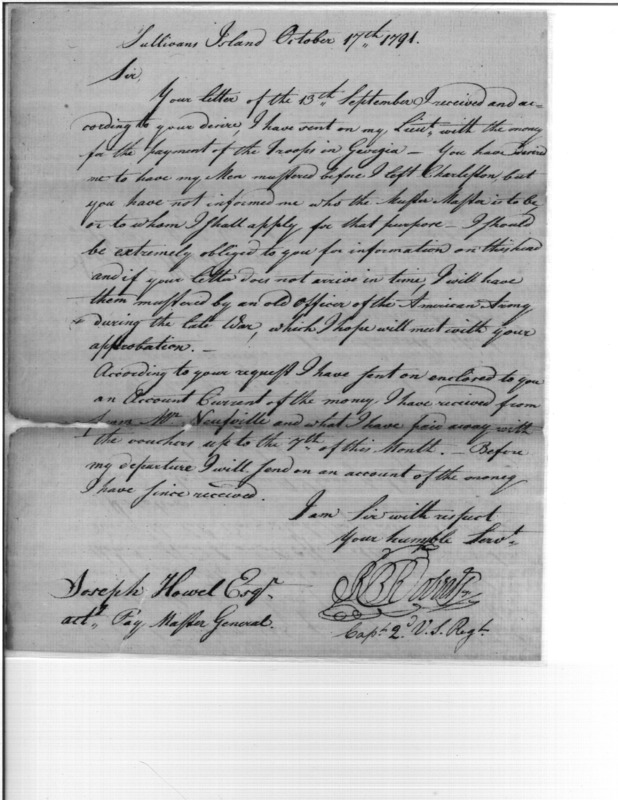 Sullivans Island October 17th 1791.
Sir,
Your letter of the 13th September I received and ac=
cording to your desire I have sent on my Lieut. with the money
for the payment of the Troops in Georgia – You have desired
me to have my Men mustered before I left Charleston, but
you have not informed me who the Muster Master is to be,
or to whom I shall apply for that purpose – I should
be extremely obliged to you for information on this head
and if your letter does not arrive in time, I will have
them mustered by an old Officer of the American Army
during the late War, which I hope will meet with your
approbation. –
According to your request I have sent on enclosed to you
an Account Current of the money I have received from
from Mr. Neufville and what I have paid away with
the vouchers up to the 7th of this Month. – Before
my departure I will send on an account of the money
I have since received.
I am Sir with respect
Your humble Servt.
Joseph Howel Esqr.
actg. Pay Master General.
R B Roberts
Capt. 2d U.S. Regt.